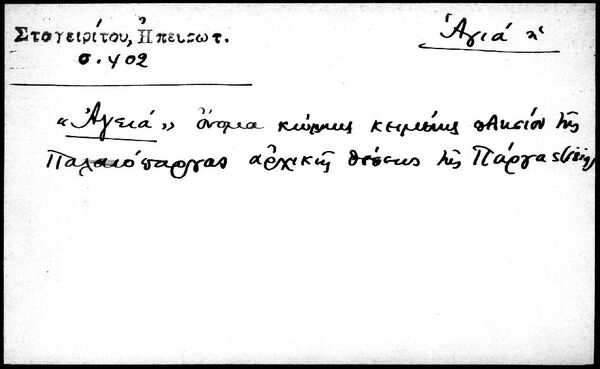 Σταγειρίτου, Ηπειρωτ.
σ. 402
Ἁγιά ἡ
«Ἁγειά» ὄνομα κώμης κειμένης πλησίον τῆς
Παλαιόπαργας ἀρχικῆς θέσεως τῆς Πάργας